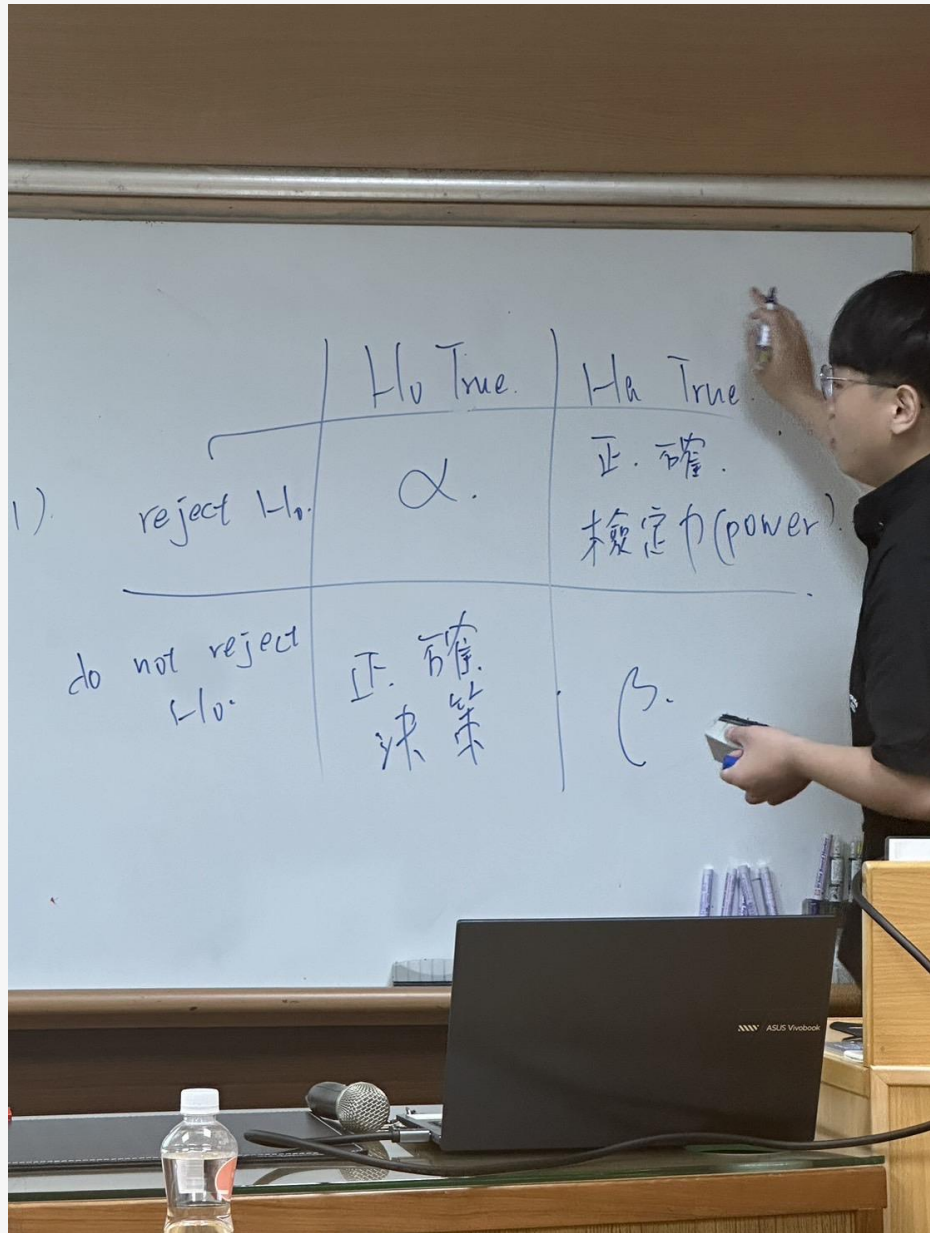 H0 True. Ha True
1). reject H0. α. 正.確.
檢定力(power).
do not reject 正.確.
H0. 決策 β.
ASUS Vivobook